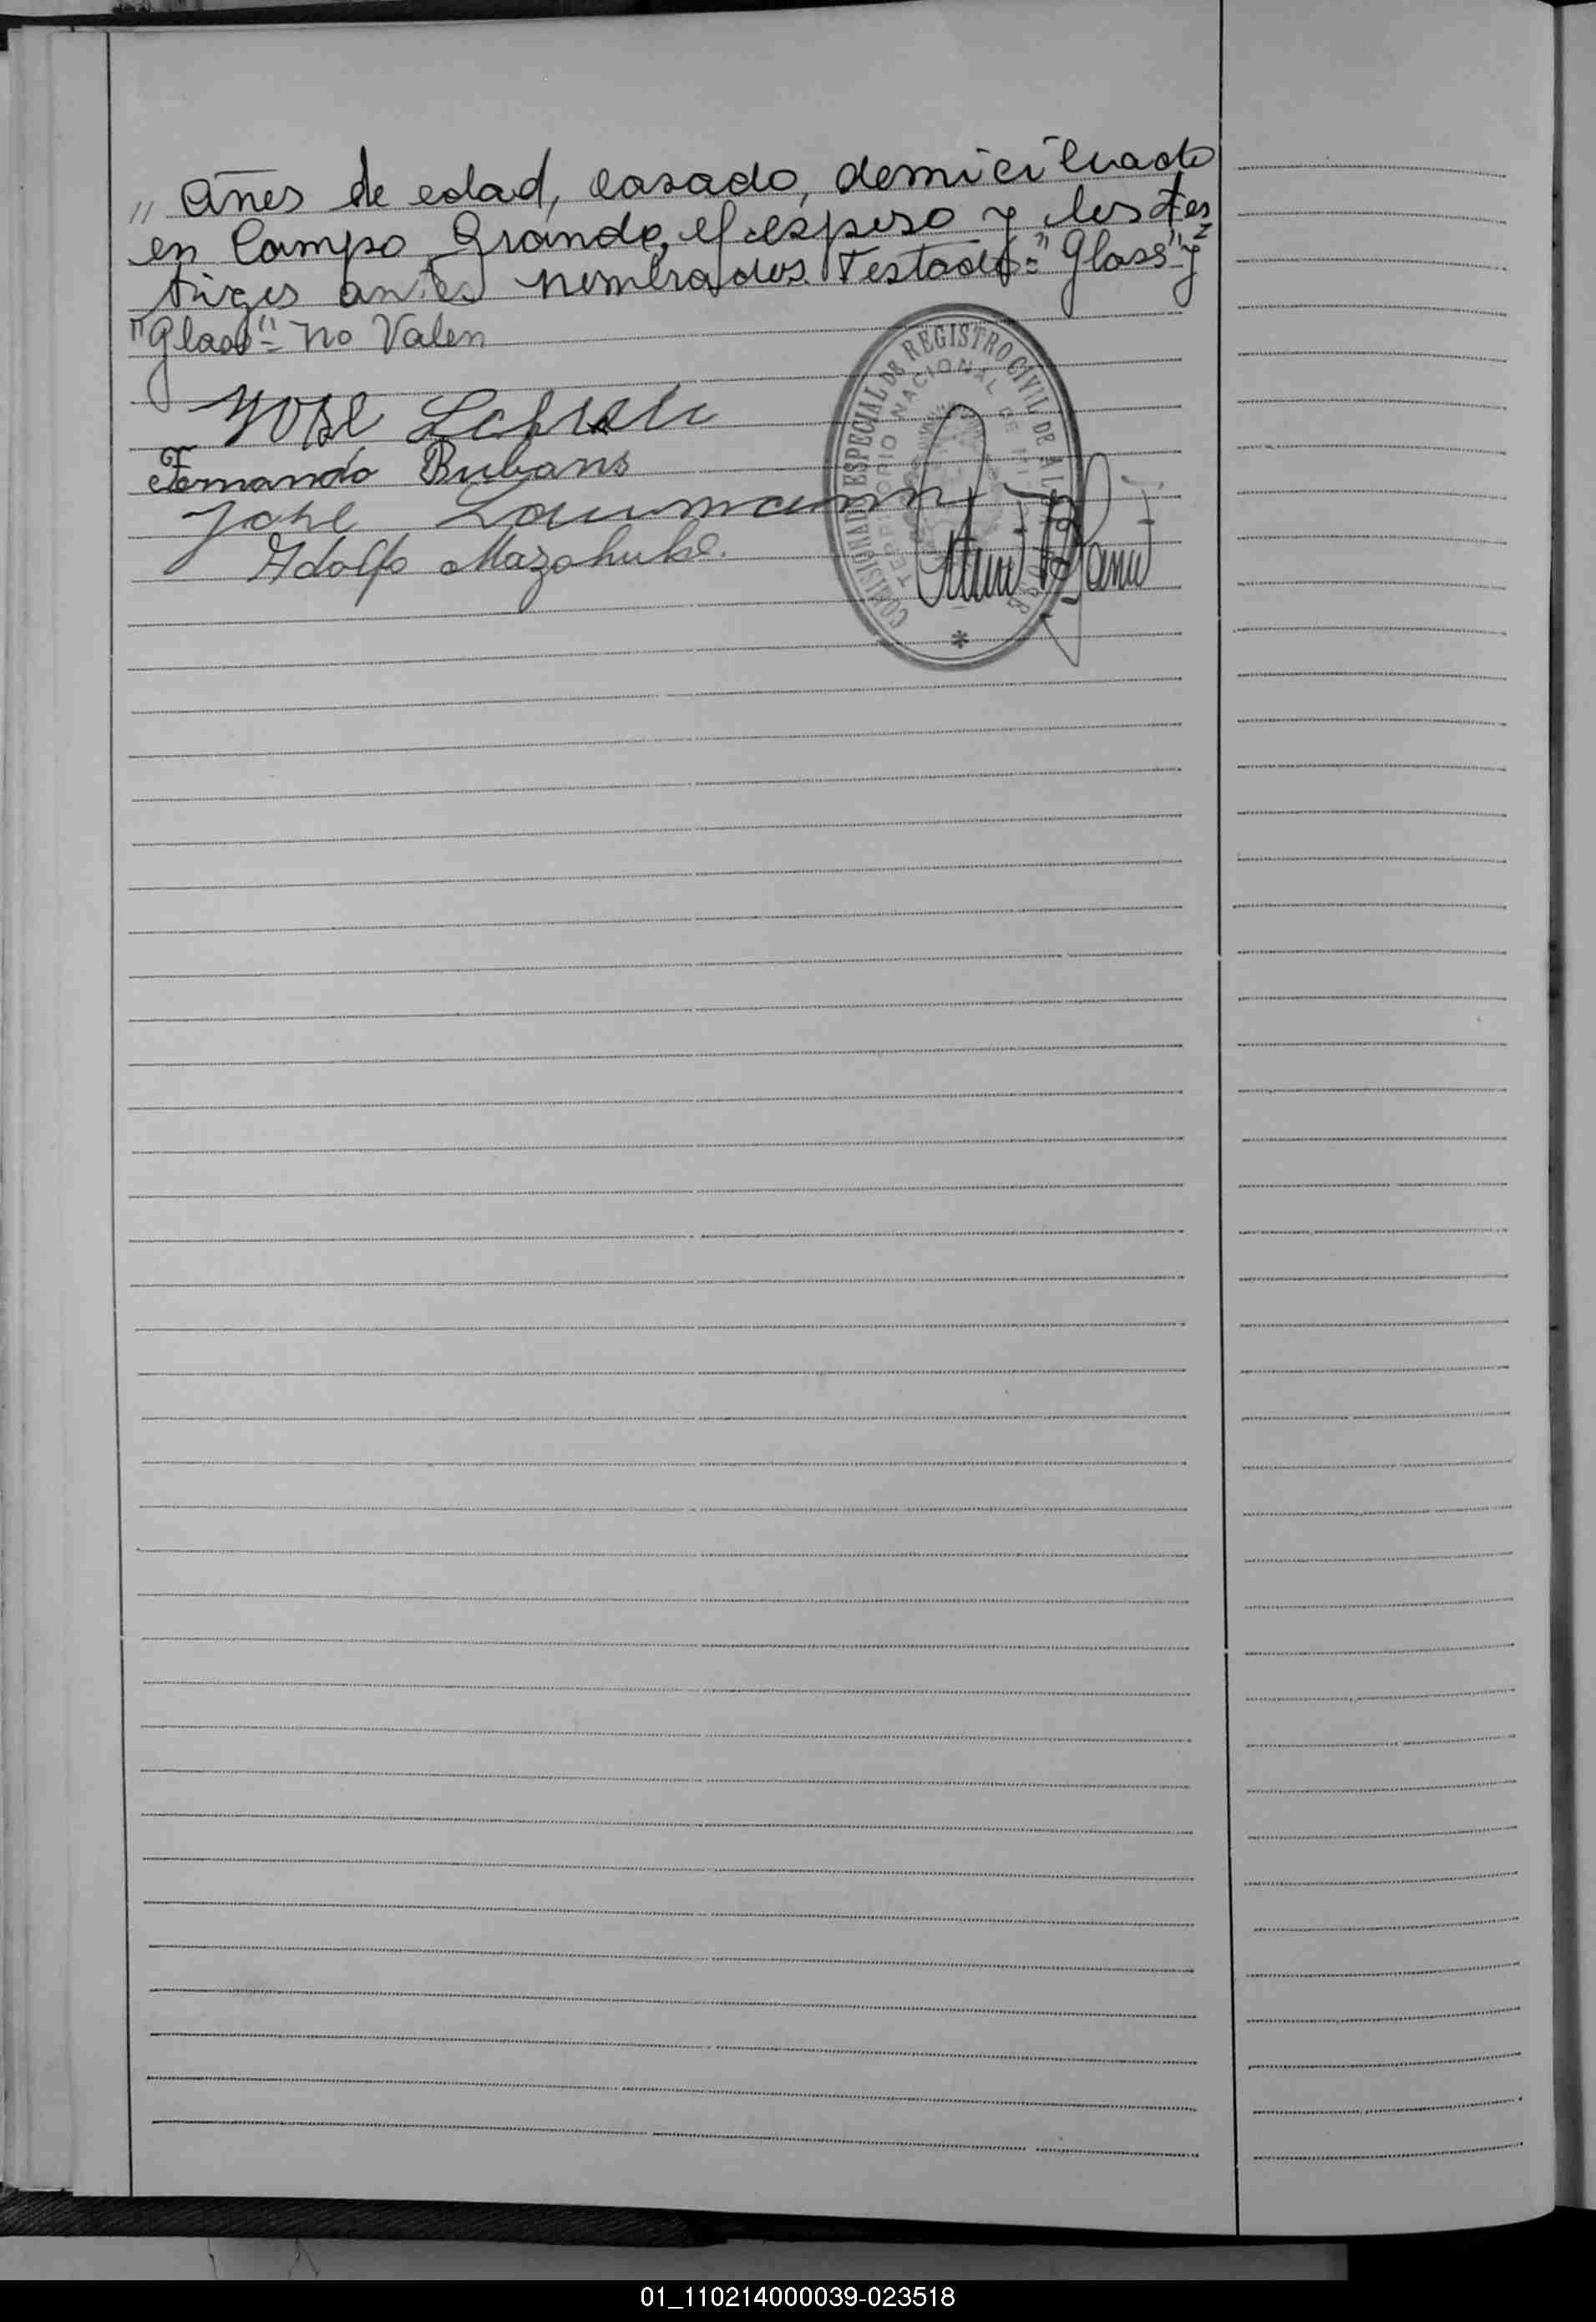 " años de edad, casado, domiciliado
en Campo Grande, el esposo y los tes
tigos antes nombrados. Testado: "Glass" y
"Glass" = no Valen
José
Fernando Bubans
José Laummann
Adolfo Mazohube.
COMISIONADO ESPECIAL DE REGISTRO CIVIL DE
TERRITORIO NACIONAL DE
01_110214000039-023518